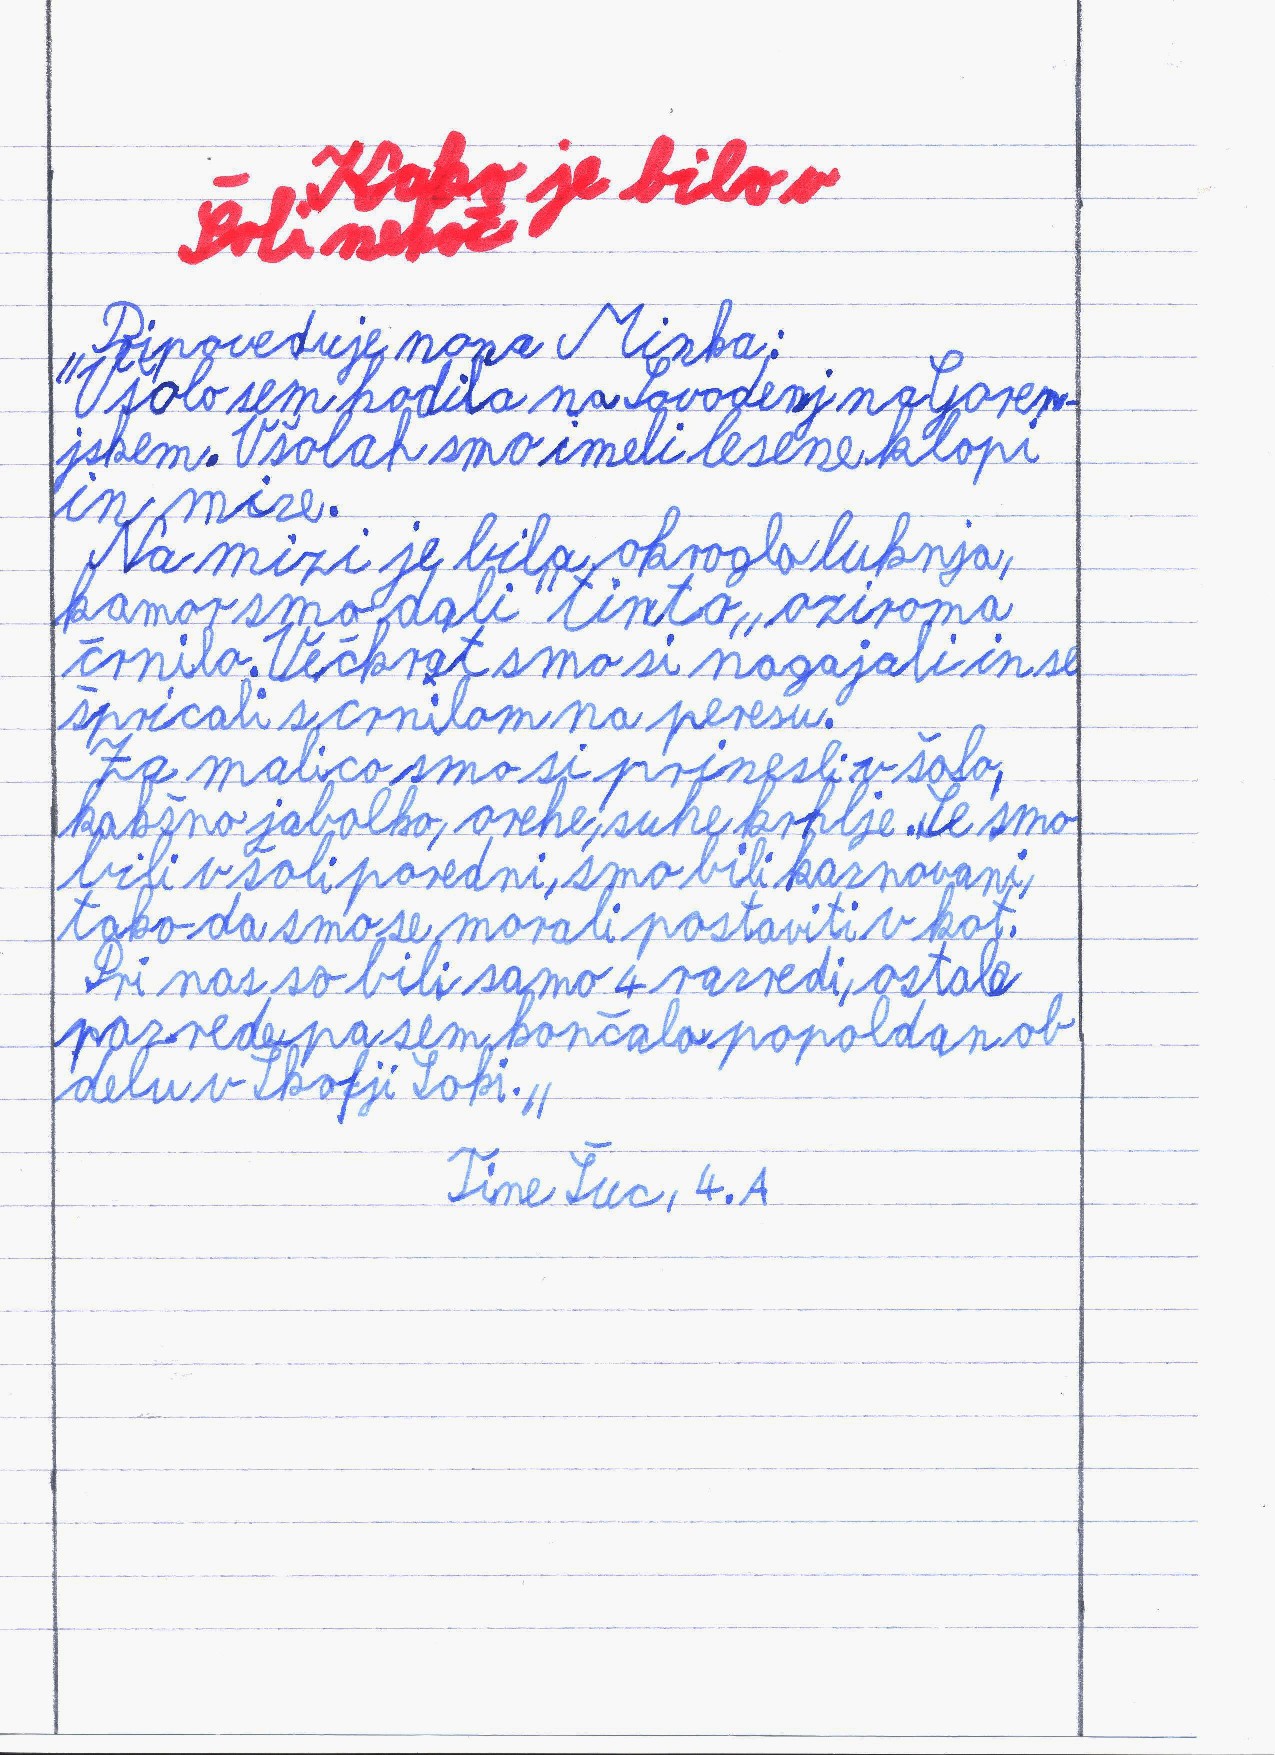 Kako je bilo v
Šoli nekoč
Pripoveduje nona Minka:
"V šolo sem hodila na Sovodenj na Gorenj-
jskem. V šolah smo imeli lesene klopi
in mize.
Na mizi je bila okrogla luknja,
kamor smo dali "tinto„ oziroma
črnilo. Večkrat smo si nagajali in se
špricali s črnilom na peresu.
Za malico smo si prinesli v šolo,
kakšno jabolko, orehe, suhe krhlje. Če smo
bili v šoli poredni, smo bili kaznovani,
tako da smo se morali postaviti v kot.
Pri nas so bili samo 4 razredi, ostale
razrede pa sem končala popoldan ob
delu v Škofji Loki.„
Tine Šuc, 4. A